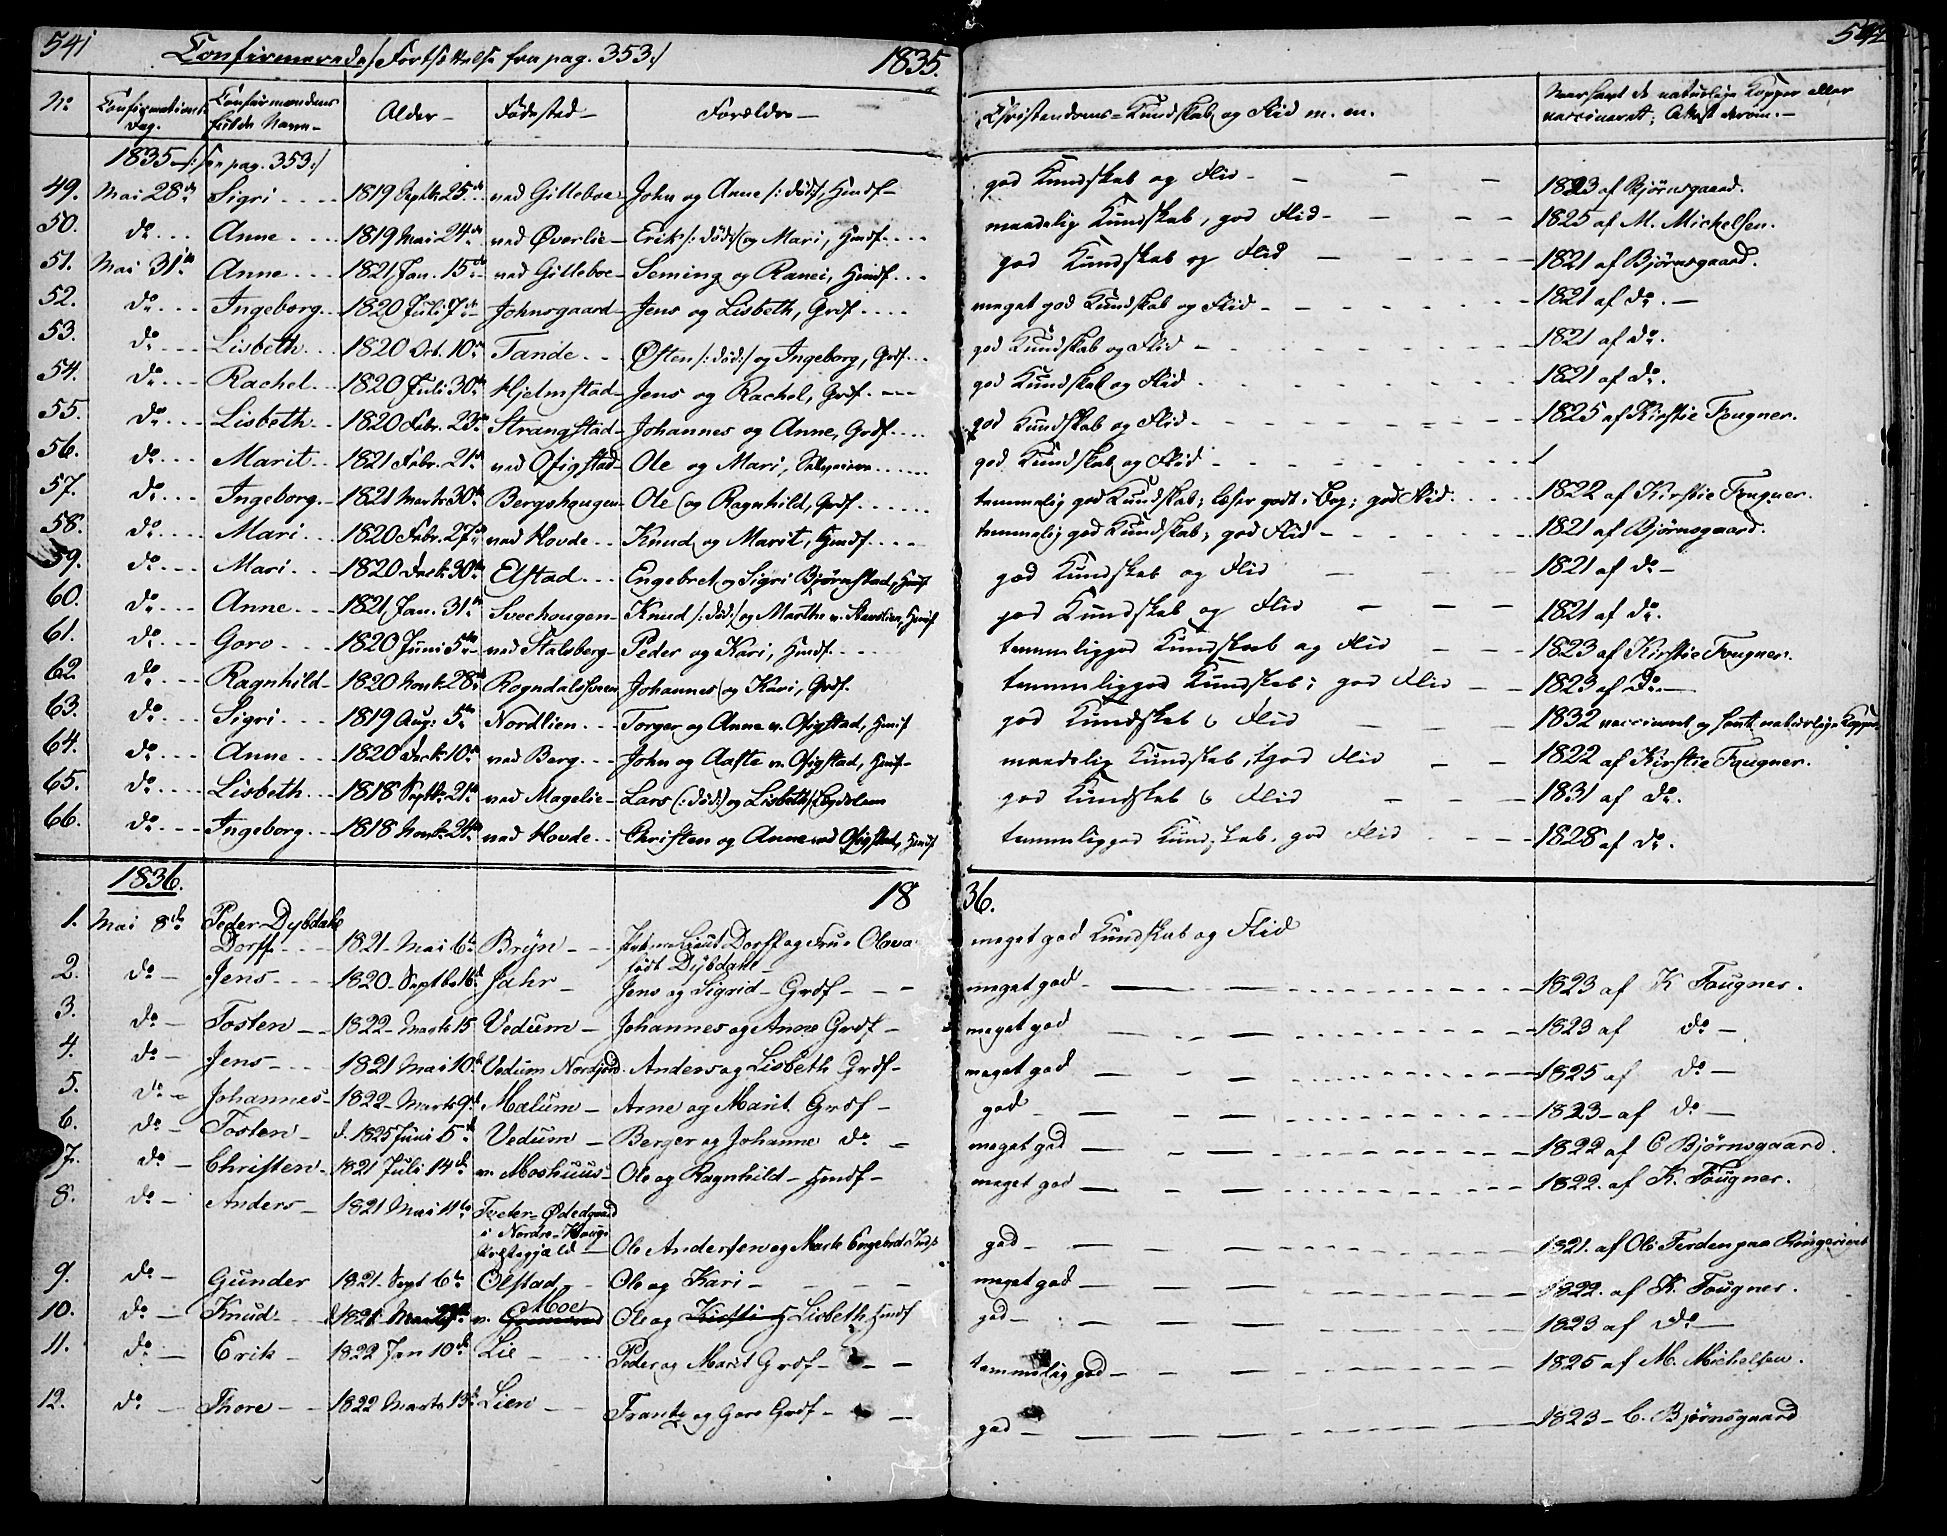 541 Confirmerede /: Fortsættelse fra pag. 353 :/ 1835. 542
No Confirmations Dag. Confirmandens fulde Navn - Alder - Fødested - Forældre - Christendoms-Kundskab og Flid m. m. Naar havt de naturlige Kopper eller vaccineret; Attest derom. -
1835 /: see pag. 353 :/
49. Mai 28de Sigri 1819 Septb. 25de ved Gilleboe John og Anne /: død :/, Hmdf - god Kundskab og Flid - 1823 af Bjørnsgaard.
50. do Anne 1819 Mai 24de ved Øverlie - Erik /: død :/ og Mari, Hmdf. maadelig Kundskab, god Flid - 1825 af M. Michelsen.
51. Mai 31te Anne 1821 Jan. 15de ved Gilleboe - Seming og Ranei, Hmdf. god Kundskab og Flid 1821 af Bjørnsgaard.
52. do Ingeborg 1820 Juli 7de Johnsgaard - Jens og Lisbeth, Grdf. meget god Kundskab og Flid - 1821 af do. -
53. do Lisbeth 1820 Oct. 10de Tande Østen /: død :/ og Ingeborg, Grdf. god Kundskab og Flid - 1821 af do.
54. do Rachel 1820 Juli 30te Hjelmstad - Jens og Rachel, Grdf. god Kundskab og Flid 1821 af do.
55. do Lisbeth 1820 Febr. 23de Strangstad - Johannes og Anne, Grdf. god Kundskab og Flid - 1825 af Kirstie Fougner.
56. do Marit 1821 Febr. 21de ved Ofigstad - Ole og Mari, god Kundskab og Flid
57. do Ingeborg 1821 Marts 30te Bergshougen - Ole og Ragnhild, Grdf. temmelig god Kundskab; læser godt i Bog; god Flid. 1822 af Kirstie Fougner.
58. do Mari 1820 Febr. 27de ved Hovde Knud og Marit, Hmdf. temmelig god Kundskab; god Flid - 1821 af Bjørnsgaard.
59. do Mari 1820 Decb. 30te Elstad Engebret og Sigri Bjørnstad, Hmdf god Kundskab og Flid 1821 af do -
60. do Anne 1821 Jan. 31te Svechougen - Knud /: død :/ og Marthe Hmdf god Kundskab og Flid 1821 af do.
61. do Goro 1820 Juni 5te ved Stalsberg - Peder og Kari, Hmdf. temmeliggod Kundskab og Flid 1823 af Kirstie Fougner.
62. do Ragnhild - 1820 Novb. 28de Johannes og Kari, Grdf. temmeliggod Kundskab; god Flid 1823 af Do. -
63. do Sigri 1819 Aug. 5te Nordlien Torger og Anne v. Ofigstad, Hmdf god Kundskab & Flid 1832 vaccineret og havt naturlige Kopper
64. do Anne 1820 Decb. 10de ved Berg John og Aaste v. Ofigstad, Hmdf - maadelig Kundskab, god Flid 1822 af Kirstie Fougner.
65. do Lisbeth 1818 Septb. 21de ved Magelie - Lars /: død :/ og Lisbeth god Kundskab & Flid 1831 af do.
66. do Ingeborg 1818 Novb. ved Hovde Christen og Anne ved Ofigstad, Hmdf temmeliggod Kundskab, god Flid 1828 af do.
1836. 1836.
1. Mai 8de Peder Dybdahl
Dorff 1821 - Mai 6te Bryn - Lieut. Dorff og Frue Olava meget god Kundskab og Flid
født Dybdahl -
2. do - Jens 1820 - Septbr 16de Fahr - Jens og Sigrid - Grdf - meget god - 1823 af K Fougner.
3. do - Tosten 1822 - Marts 15 Vedum - Johannes og Anne Grdf - meget god 1823 af do -
4. do - Jens 1821 Mai 10de Vedum Nordjord Anders og Lisbeth Grdf - meget god 1825 af do -
5. do - Johannes - 1822 - Marts 9de Mælum - Arne og Marit Grdf - god - 1823 - af do -
6. do - Tosten - d. 1825 Juni 5de Vedum - Berger og Johanne do - meget god 1822 af C Bjørnsgaard.
7. do - Christen - 1821 Juli 14de v. Moshuus - Ole og Ragnhild - Hmdf - meget god 1822. af K. Fougner.
8. do - Anders - 1821 Mai 11te Tveter - Ødedgaard
i Nordre - Hougs
Præstegjæld - Ole Andersen og Marte god - 1821. af Ole Ferden paa Ringeriget
9. do - Gunder 1821. Sept 6te Olstad - Ole og Kari - meget god - 1822. af K. Fougner.
10. do - Knud 1821 Marts v. Moe Ole og Kirsti og Lisbeth Hmdf god - 1823 af do -
11. do - Erik - 1822 Jan 10de Lie Peder og Marit Grdf - temmelig god - 1825 af M. Michelsen.
12. do - Thore - 1822 Marts 13de Lien Frantz og Goro Grdf - god - 1823 - C. Bjørnsgaard